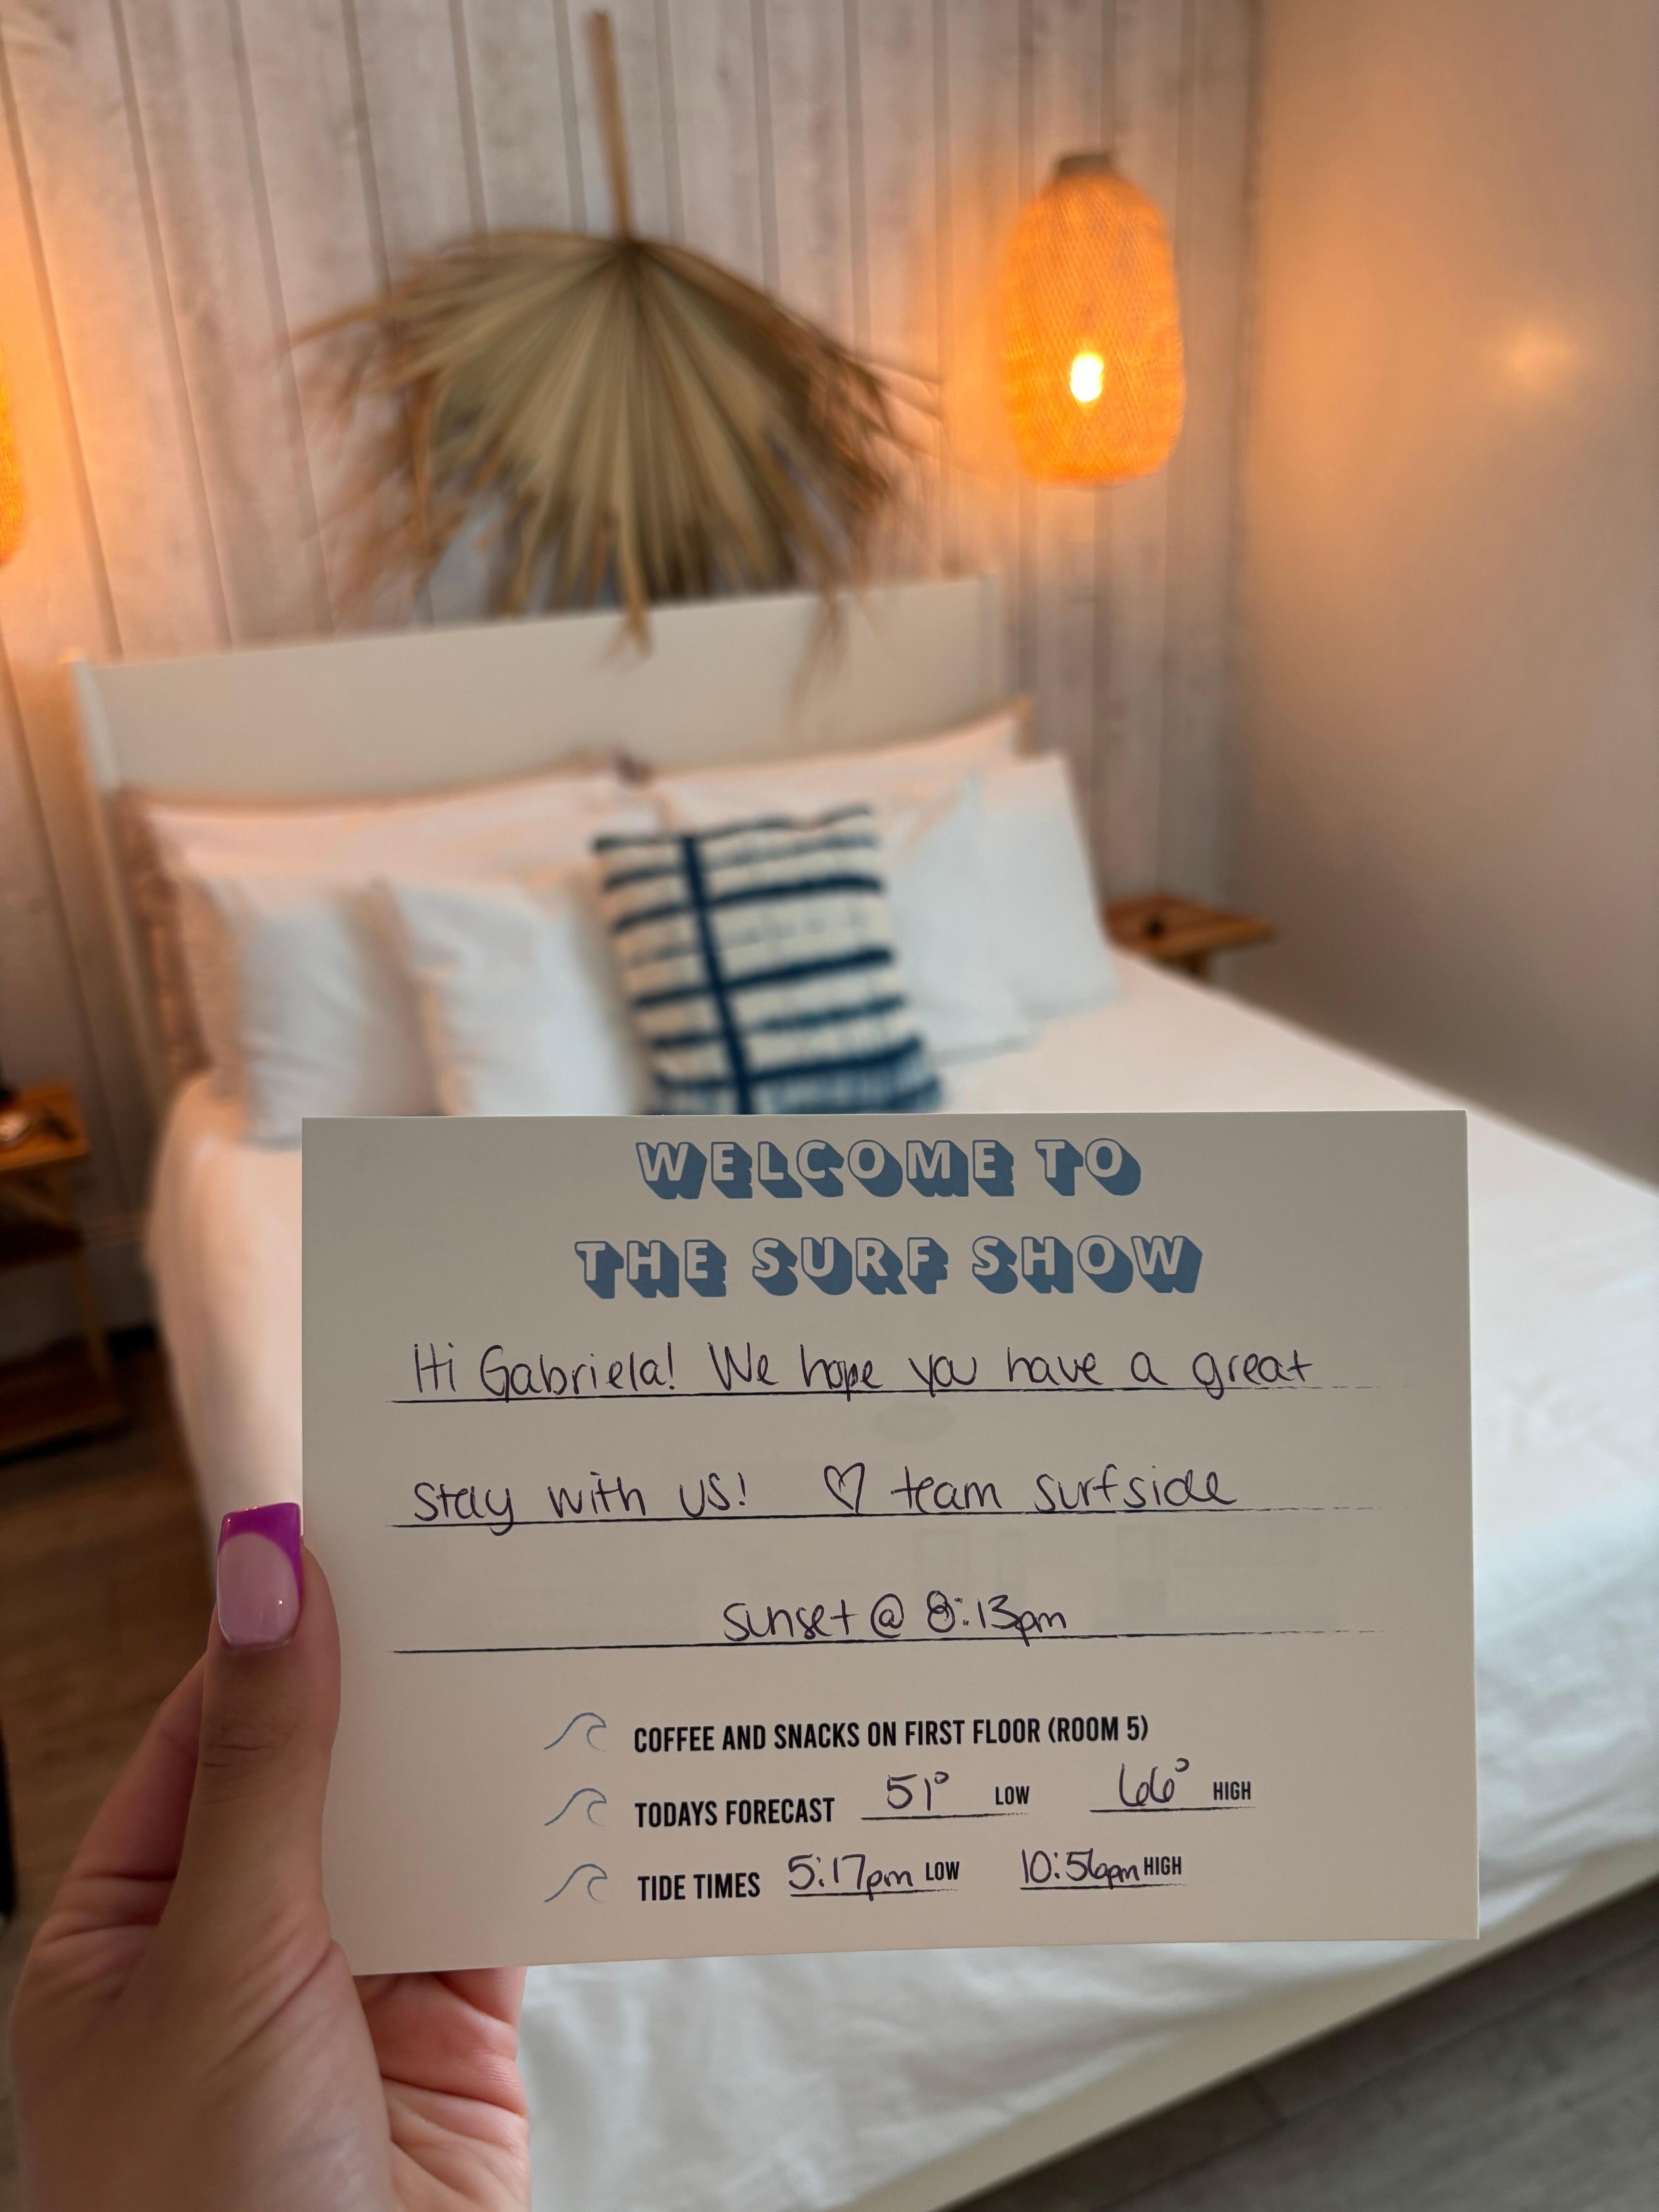 WELCOME TO
THE SURF SHOW
Hi Gabriela! We hope you have a great
stay with us! ♡ team surfside
sunset @ 8:13pm
COFFEE AND SNACKS ON FIRST FLOOR (ROOM 5)
TODAYS FORECAST 51° LOW 66° HIGH
TIDE TIMES 5:17pm LOW 10:56pm HIGH